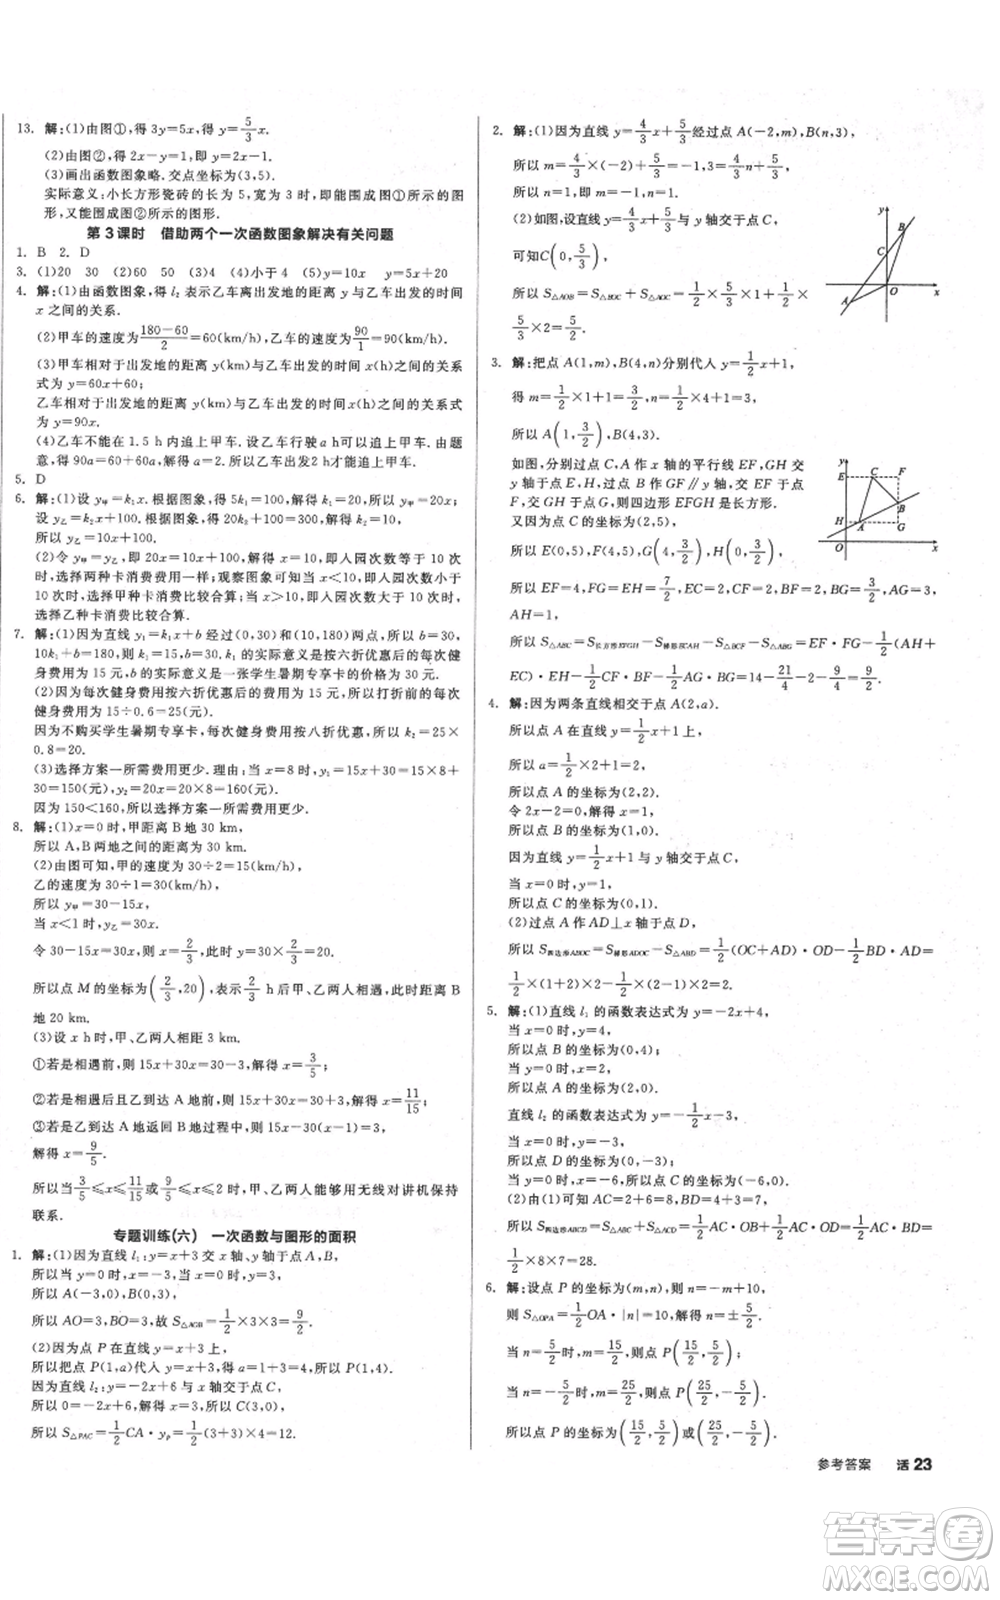 13. 解:(1)由图①,得 3y=5x,得 y=5/3x.
(2)由图②,得 2x-y=1,即 y=2x-1.
(3)画出函数图象略. 交点坐标为(3,5).
实际意义:小长方形瓷砖的长为 5,宽为 3 时,即能围成图①所示的图
形,又能围成图②所示的图形.
第 3 课时 借助两个一次函数图象解决有关问题
1. B 2. D
3. (1)20 30 (2)60 50 (3)4 (4)小于 4 (5)y=10x y=5x+20
4. 解:(1)由函数图象,得 l₂ 表示乙车离出发地的距离 y 与行驶时间
x 之间的关系.
(2)甲车的速度为(180-60)/2=60(km/h),乙车的速度为90/1=90(km/h).
(3)甲车相对于出发地的距离 y(km)与行驶的时间 x(h)之间的关系
式为 y=60x+60;
乙车相对于出发地的距离 y(km)与行驶的时间 x(h)之间的关系式为
y=90x.
(4)乙车不能在 1.5 h 内追上甲车. 设乙车行驶 a h 可以追上甲车. 由题
意,得 90a=60a+60,解得 a=2. 所以乙车出发2 h 才能追上甲车.
5. D
6. 解:(1)设 y甲=k₁x. 根据图象,得 5k₁=100,解得 k₁=20. 所以 y甲=20x.
设 y乙=k₂x+100. 根据图象,得 20k₂+100=300,解得 k₂=10.
所以 y乙=10x+100.
(2)令 y甲=y乙,即 20x=10x+100,解得 x=10,即入园次数等于 10 次
时,选择两种卡消费费用一样;观察图象可知:当 x>10,即入园次数大于
10 次时,选择乙种卡消费比较合算;当 x<10,即入园次数小于 10 次时,
选择甲种卡消费比较合算.
7. 解:(1)因为直线 y₁=k₁x+b 经过(0,30)和(10,180)两点,所以 b=30,
10k₁+b=180. 所以 k₁=15. k₁ 的实际意义是打六折优惠后的每次健
身费用为 15 元,b 的实际意义是一张学生暑期专享卡的价格为 30 元.
(2)因为每次健身费用按六折优惠后的费用为 15 元,所以打折前的每次
健身费用为 15÷0.6=25(元).
因为不购买学生暑期专享卡,每次健身费用按八折优惠,所以 k₂=25×
0.8=20.
(3)选择方案一所需费用更少. 理由:当 x=8 时,y₁=15x+30=15×8+
30=150(元),y₂=20x=20×8=160(元).
因为 150<160,所以选择方案一所需费用更少.
8. 解:(1)x=0 时,甲距离 B 地 30 km,
所以 A、B 两地之间的距离为 30 km.
(2)由图可知,甲的速度为 30÷2=15(km/h),
乙的速度为 30÷1=30(km/h).
所以 y甲=30-15x,
当 x<1 时,y乙=30x.
令 30-15x=30x,则 x=2/3,此时 y乙=30×2/3=20.
所以点 M 的坐标为(2/3,20),表示2/3 h 甲、乙两人相遇,此时距离 B
地 20 km.
(3)设 x h 时,甲、乙两人相距 3 km.
①若是相遇前,则 15x+30x=30-3,解得 x=3/5;
②若是相遇后且乙到达 A 地前,则 15x+30x=30+3,解得 x=11/15;
③若是乙到达 A 地后返回 B 地过程中,则 15x-30(x-1)=3,
解得 x=9/5.
所以当3/5≤x≤11/15或9/5≤x≤2 时,甲、乙两人能够用无线对讲机保持
联系.
专题训练(六) 一次函数与图形的面积
1. 解:(1)因为直线 l₁:y=x+3 交 x 轴、y 轴于点 A,B,
所以当 y=0 时,x=-3,当 x=0 时,y=3.
所以 A(-3,0),B(0,3).
所以 AO=3,BO=3,故 S△AOB=1/2×3×3=9/2.
(2)因为点 P 在直线 y=x+3 上,
所以把点 P(1,a)代入,得 a=1+3=4. 所以 P(1,4).
因为直线 l₂:y=-2x+6 与 x 轴交于点 C,
所以 0=-2x+6,解得 x=3. 所以 C(3,0),
所以 S△PAC=1/2CA·yₚ=1/2×(3+3)×4=12.
2. 解:(1)因为直线 y=4/3x+5/3经过点 A(-2,m),B(n,3),
所以 m=4/3×(-2)+5/3=-1,3=4/3n+5/3.
所以 n=1,即 m=-1,n=1.
(2)如图,设直线 y=4/3x+5/3与 y 轴交于点 C,
可知C(0,5/3),
所以 S△AOB=S△BOC+S△AOC=1/2×5/3×1+1/2×
5/3×2=5/2.
y B C A O x
3. 解:把点 A(1,m),B(4,n)分别代入 y=1/2x+1,
得 m=1/2×1+1=3/2,n=1/2×4+1=3.
所以 A(1,3/2),B(4,3).
如图,分别过点 C,A 作 x 轴的平行线 EF,GH 交
y 轴于点 E,H,过点 B 作 GF∥y 轴,交 EF 于点
F,交 GH 于点 G,则四边形 EFGH 是长方形.
又因为点 C 的坐标为(2,5),
所以 E(0,5),F(4,5),G(4,3/2),H(0,3/2).
y E C F B H A G O x
所以 EF=4,FG=EH=7/2,EC=2,CF=2,BF=2,BG=3/2,AG=3,
AH=1,
所以 S△ABC=S长方形EFGH-S梯形ECAH-S△BCF-S△ABG=EF·FG-1/2(AH+
EC)·EH-1/2CF·BF-1/2AG·BG=14-21/4-2-9/4=9/2.
4. 解:因为两条直线相交于点 A(2,a).
所以点 A 在直线 y=1/2x+1 上,
所以 a=1/2×2+1=2.
所以点 A 的坐标为(2,2).
令 2x-2=0,解得 x=1.
所以点 B 的坐标为(1,0).
因为直线 y=1/2x+1 与 y 轴交于点 C,
当 x=0 时,y=1,
所以点 C 的坐标为(0,1).
(2)过点 A 作 AD⊥x 轴于点 D,
所以 S四边形ABOC=S梯形ADOC-S△ABD=1/2(OC+AD)·OD-1/2BD·AD=
1/2×(1+2)×2-1/2×(2-1)×2=2.
5. 解:(1)直线 l₁ 的函数表达式为 y=-2x+4,
当 x=0 时,y=4,
所以点 B 的坐标为(0,4);
当 y=0 时,x=2,
所以点 A 的坐标为(2,0).
直线 l₂ 的函数表达式为 y=-1/2x-3,
当 x=0 时,y=-3,
所以点 D 的坐标为(0,-3);
当 y=0 时,x=-6,所以点 C 的坐标为(-6,0).
(2)由(1)可知 AC=2+6=8,BD=4+3=7,
所以 S四边形ABCD=S△ABC+S△ACD=1/2AC·OB+1/2AC·OD=1/2AC·BD=
1/2×8×7=28.
6. 解:设点 P 的坐标为(m,n),则 n=-m+10,
则 S△OPA=1/2OA·|n|=10,解得 n=±5/2.
当 n=5/2时,m=15/2,则点 P(15/2,5/2);
当 n=-5/2时,m=25/2,则点 P(25/2,-5/2).
所以点 P 的坐标为(15/2,5/2)或(25/2,-5/2).
参考答案 活 23
答案卷